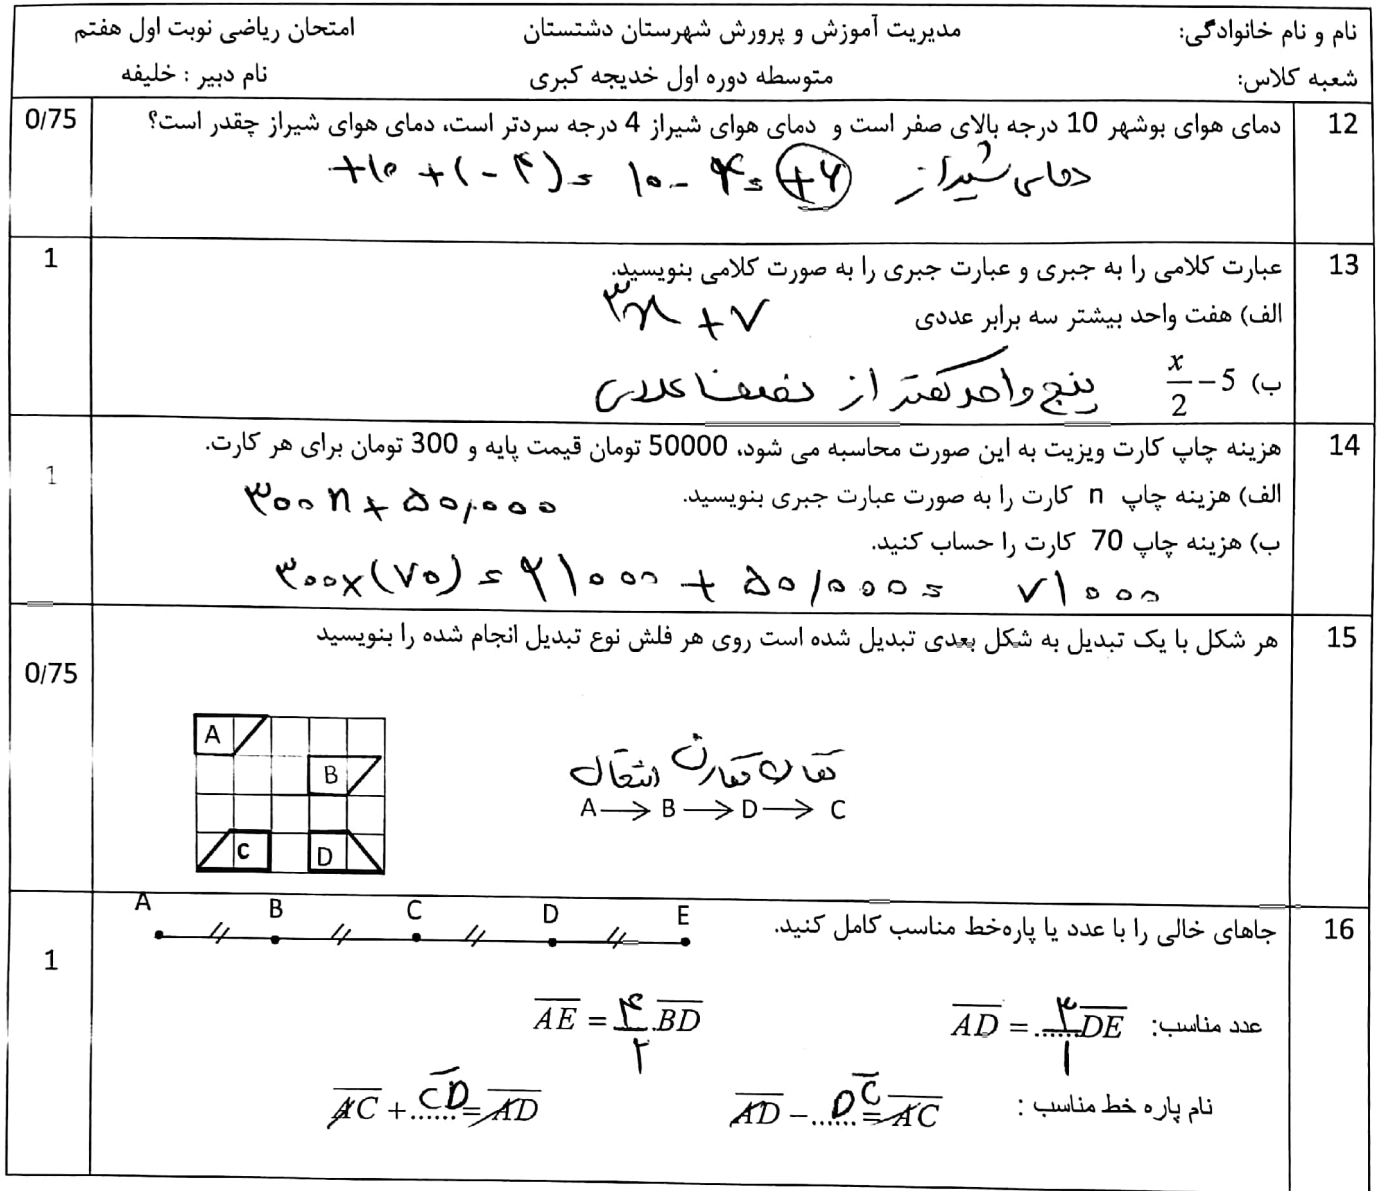 نام و نام خانوادگی: مدیریت آموزش و پرورش شهرستان دشتستان امتحان ریاضی نوبت اول هفتم
شعبه کلاس: متوسطه دوره اول خدیجه کبری نام دبیر : خلیفه
12 دمای هوای بوشهر 10 درجه بالای صفر است و دمای هوای شیراز 4 درجه سردتر است، دمای هوای شیراز چقدر است؟ 0/75
دمای شیراز +۱۰ + (-۴) = ۱۰ - ۴ = +۶
13 عبارت کلامی را به جبری و عبارت جبری را به صورت کلامی بنویسید. 1
الف) هفت واحد بیشتر سه برابر عددی ۳x + ۷
ب) x/2 - 5 پنج واحد کمتر از نصف عددی
14 هزینه چاپ کارت ویزیت به این صورت محاسبه می شود، 50000 تومان قیمت پایه و 300 تومان برای هر کارت. 1
الف) هزینه چاپ n کارت را به صورت عبارت جبری بنویسید. ۳۰۰n + ۵۰,۰۰۰
ب) هزینه چاپ 70 کارت را حساب کنید.
۳۰۰×(۷۰) = ۲۱۰۰۰ + ۵۰,۰۰۰ = ۷۱۰۰۰
15 هر شکل با یک تبدیل به شکل بعدی تبدیل شده است روی هر فلش نوع تبدیل انجام شده را بنویسید 0/75
A
B
C D
انتقال تقارن تقارن
A → B → D → C
A B C D E
16 جاهای خالی را با عدد یا پاره‌خط مناسب کامل کنید. 1
عدد مناسب: AD = ...۳/۱... DE AE = ۴/۲ BD
نام پاره خط مناسب : AD - ..DC.. = AC AC + ..CD.. = AD